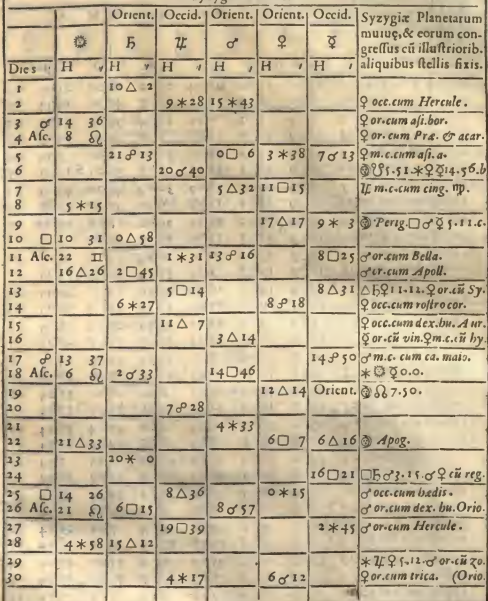 Orient. Occid. Orient. Orient. Occid. Syzygiæ Planetarum
☉ ♄ ♃ ♂ ♀ ☿ mutuę, & eorum con-
gressus cū illustriorib.
Dies H H H H H H aliquibus stellis fixis.
1 10△ 2
2 9⚹28 15⚹43 ♀ occ.cum Hercule.
3 ☌ 14 36 ♀ or.cum asi.bor.
4 Asc. 8 ♌ ♀ or.cum Præ. & acar.
5 21☍13 0□ 6 3⚹38 7☌13 ♀m.c.cum asi.a.
6 20☌40 5.51.⚹♀☿14.56.b
7 5△32 11□15 ♃ m.c.cum cing. ♍.
8 5⚹15
9 17△17 9⚹ 3 Perig.□♂♀ 5.11.c.
10 □ 10 31 0△58
11 Asc. 22 ♊ 1⚹31 13☍16 8□25 ♂or.cum Bella.
12 16△26 2□45 ♂or.cum Apoll.
13 5□14 8△31 △♄♀11.12.♀or.cū Sy.
14 6⚹27 8☍18 ♀occ.cum rostro cor.
15 11△ 7 ♀occ.cum dex.hu.Aur.
16 3△14 ☿ or.cū vin.♀m.c.cū hy.
17 ☍ 13 37 14☍50 ♂m.c. cum ca. maio.
18 Asc. 6 ♌ 2☌33 14□46 ⚹☉☿0.0.
19 12△14 Orient. ☊ 7.50.
20 7☍28
21 4⚹33
22 21△33 6□ 7 6△16 Apog.
23 20⚹ 0
24 16□21 □♄♂3.15.☌♀ cū reg.
25 □ 14 26 8△36 0⚹15 ♂occ.cum hædis.
26 Asc. 21 ♌ 6□15 8☌57 ♂or.cum dex. hu.Orio.
27 19□39 2⚹45 ♂or.cum Hercule.
28 4⚹58 15△12
29 ⚹♃♀ 5.12.♂ or.cū zo.
30 4⚹17 6☌12 ♀or.cum trica. (Orio.